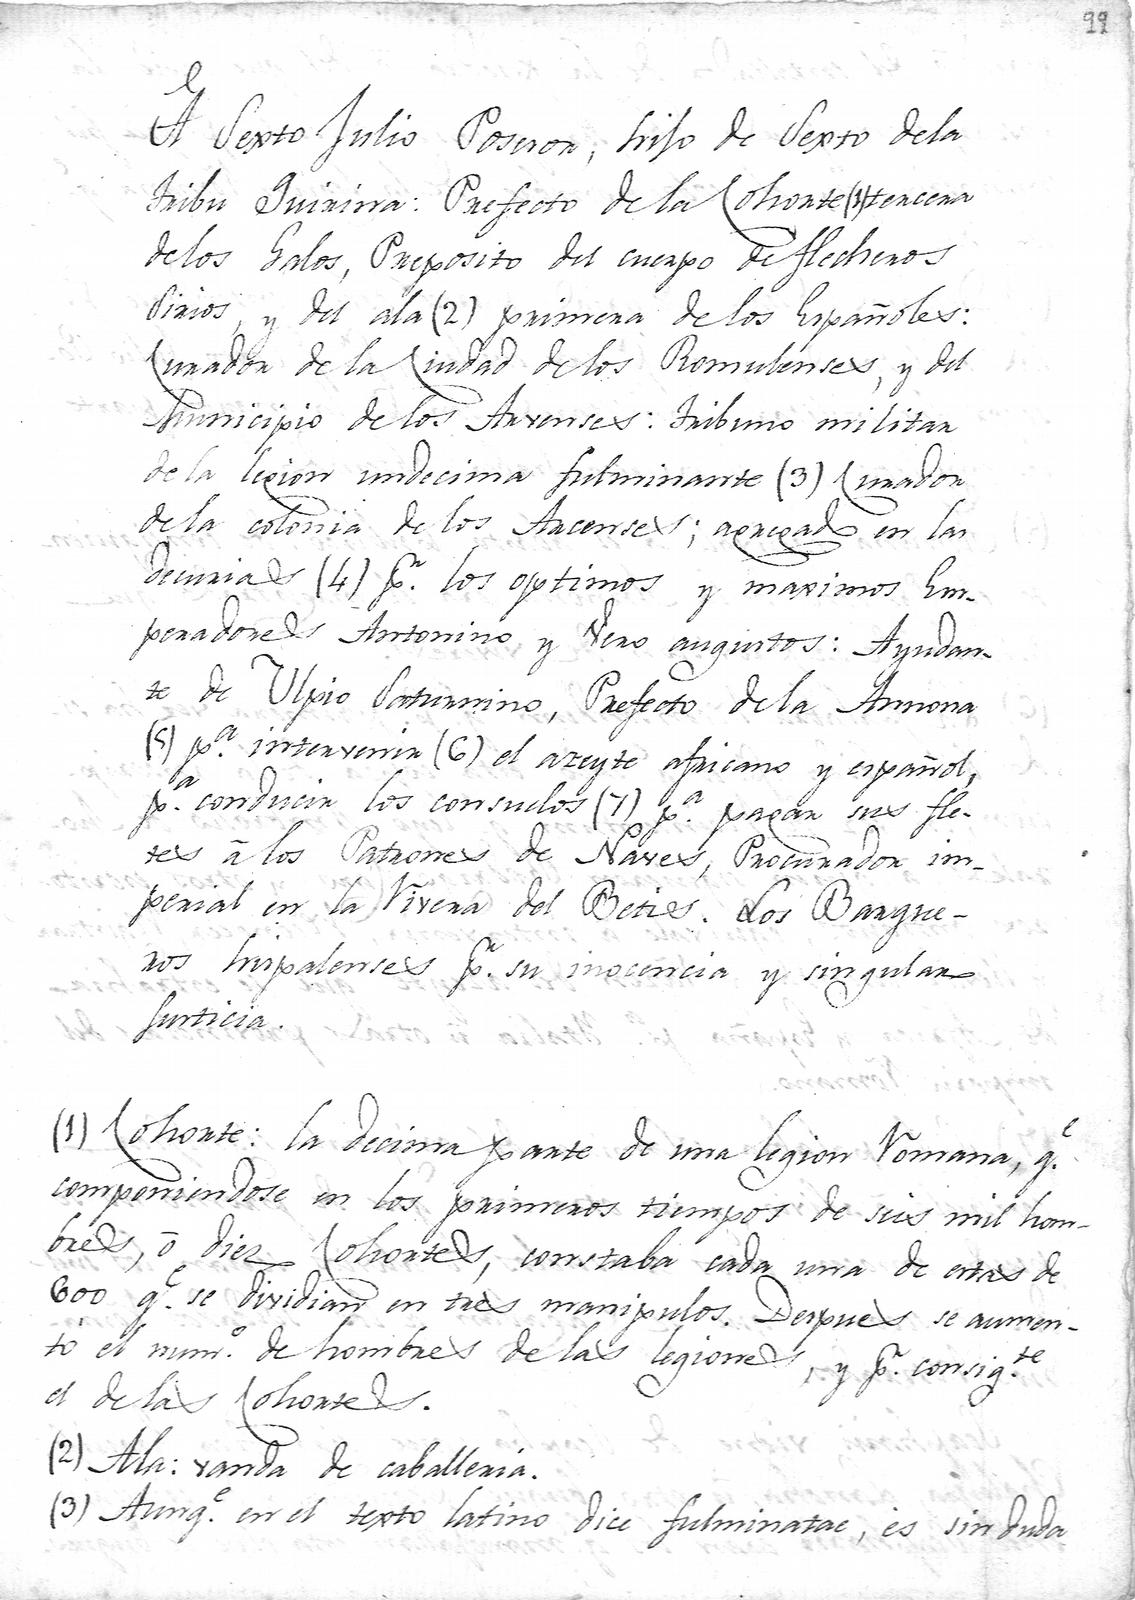 99
A Sexto Julio Poseson, hijo de Sexto dela
tribu Quirina: Prefecto de la Cohorte (1) tercera
de los Galos, Preposito del cuerpo de flecheros
Sirios, y del ala (2) primera de los Españoles:
Curador de la Ciudad de los Romulenses, y del
Municipio de los Arvenses: tribuno militar
de la legion undecima fulminante (3) Curador
de la colonia de los Arcenses; agregado en las
decurias (4) pr. los optimos y maximos Em-
peradores Antonino y Vero augustos: Ayudan-
te de Ulpio Saturnino, Prefecto de la Annona
(5) pa. intervenir (6) el azeyte africano y español,
pa. conducir los consuelos (7) pa. pagar sus fle-
tes ã los Patrones de Naves, Procurador im-
perial en la Rivera del Betis. Los Barque-
ros hispalenses pr. su inocencia y singular
justicia.
(1) Cohorte: la decima parte de una legion Romana, qe.
componiendose en los primeros tiempos de seis mil hom-
bres, õ diez Cohortes, constaba cada una de estas de
600 qe. se dividian en tres manipulos. Despues se aumen-
tó el numo. de hombres de las legiones, y pr. consigte
el de las Cohortes.
(2) Ala: vanda de caballeria.
(3) Aunqe. en el texto latino dice fulminatae, es sin duda